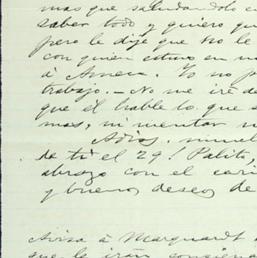 mas que saludandolo en
saber todo y quiero que
pero le dije que no le
con quien estuvo en m
á Amen. Yo no p
trabajo. - No me iré de
que él hable lo que s
mas, ni mentar n
Adios,
de ti el 29! Palito,
abrazo con el cari
y buenos deseos de
Avisa á Marquardt
que le iran